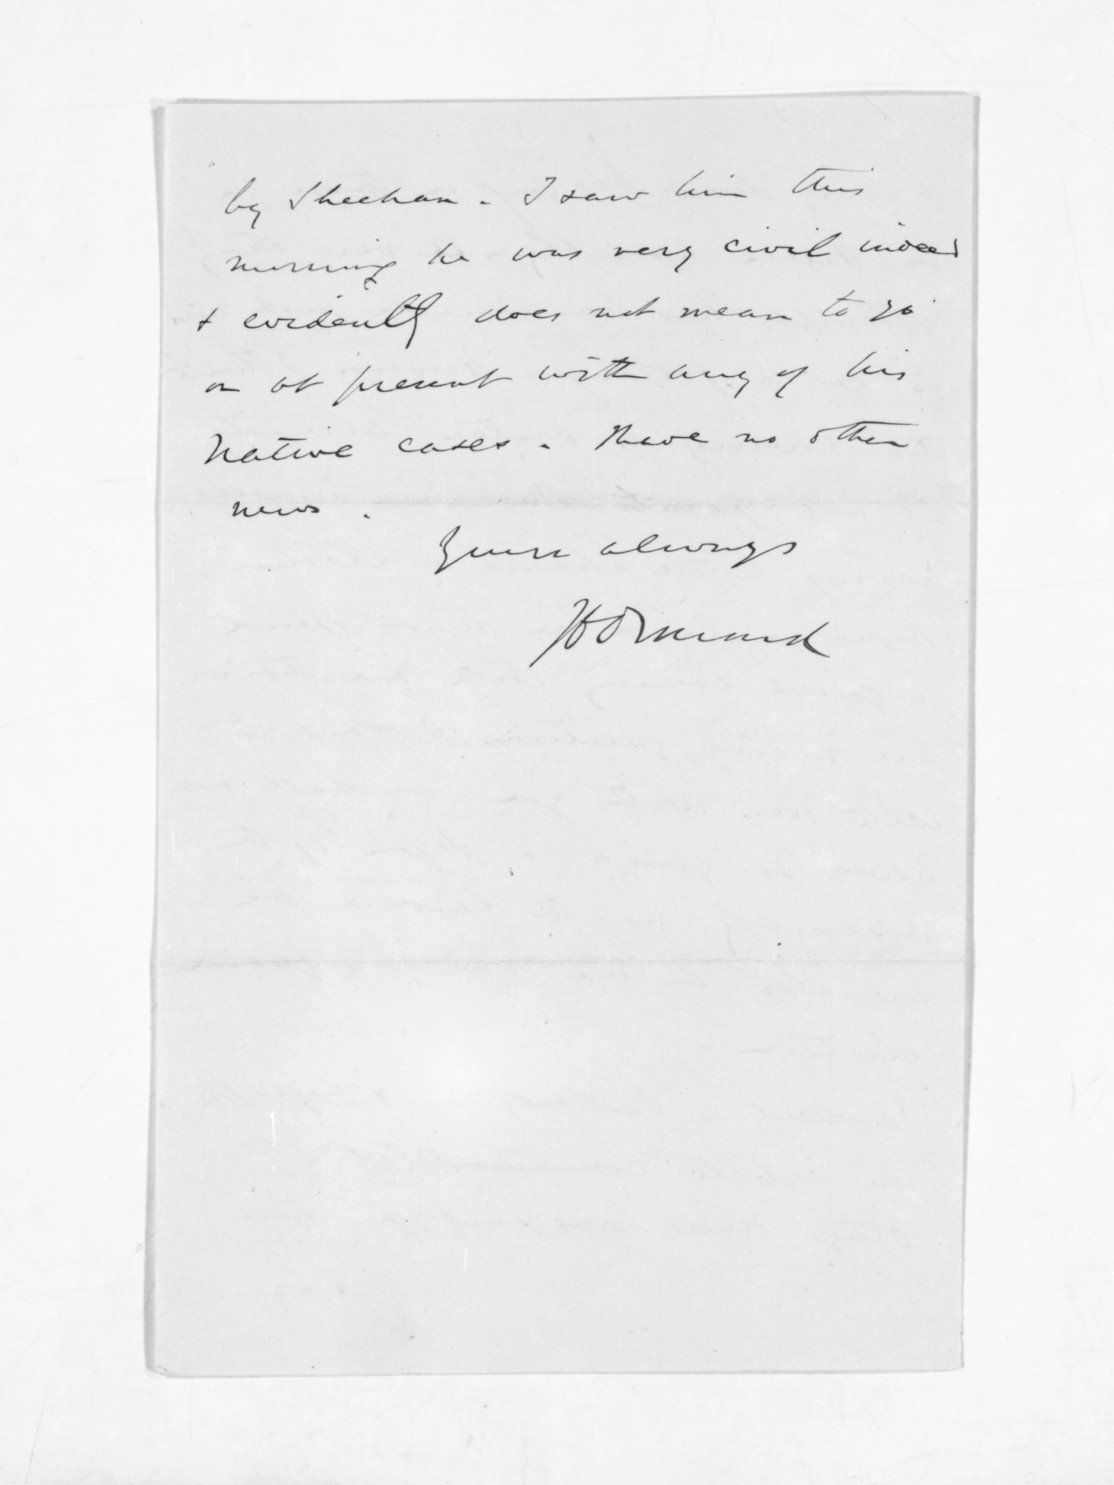 by Sheehan. I saw him this
morning he was very civil indeed
& evidently does not mean to go
on at present with any of his
Native cases. I have no other
news.
Yours always